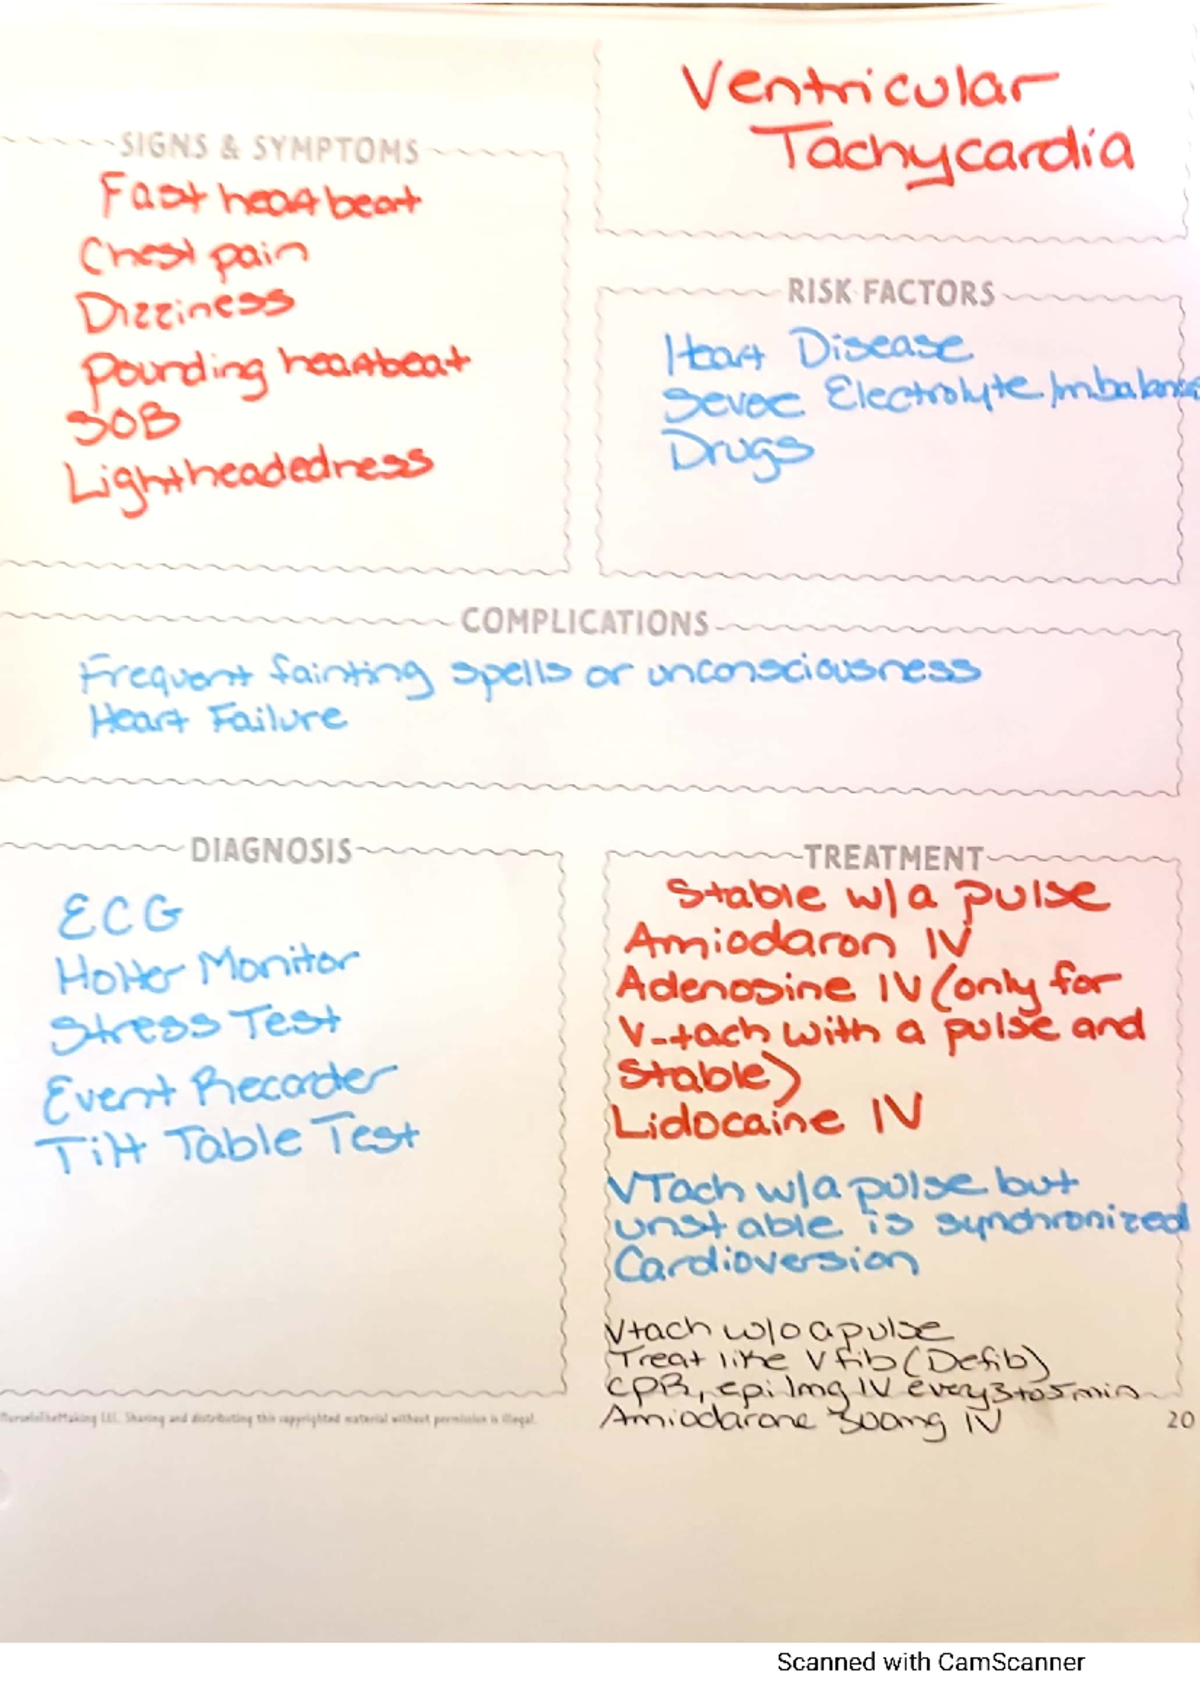 Ventricular
Tachycardia
SIGNS & SYMPTOMS
Fast heartbeat
Chest pain
Dizziness
Pounding heartbeat
SOB
Lightheadedness
RISK FACTORS
Heart Disease
Severe Electrolyte Imbalance
Drugs
COMPLICATIONS
Frequent fainting spells or unconsciousness
Heart Failure
DIAGNOSIS
ECG
Holter Monitor
Stress Test
Event Recorder
Tilt Table Test
TREATMENT
Stable w/a pulse
Amiodaron IV
Adenosine IV (only for
V-tach with a pulse and
Stable)
Lidocaine IV
VTach w/a pulse but
unstable is synchronized
Cardioversion
Vtach w/o a pulse
Treat like V fib (Defib)
CPR, epi 1mg IV every 3 to 5 min
Amiodarone 300mg IV
NurseInTheMaking LLC. Sharing and distributing this copyrighted material without permission is illegal.
20
Scanned with CamScanner